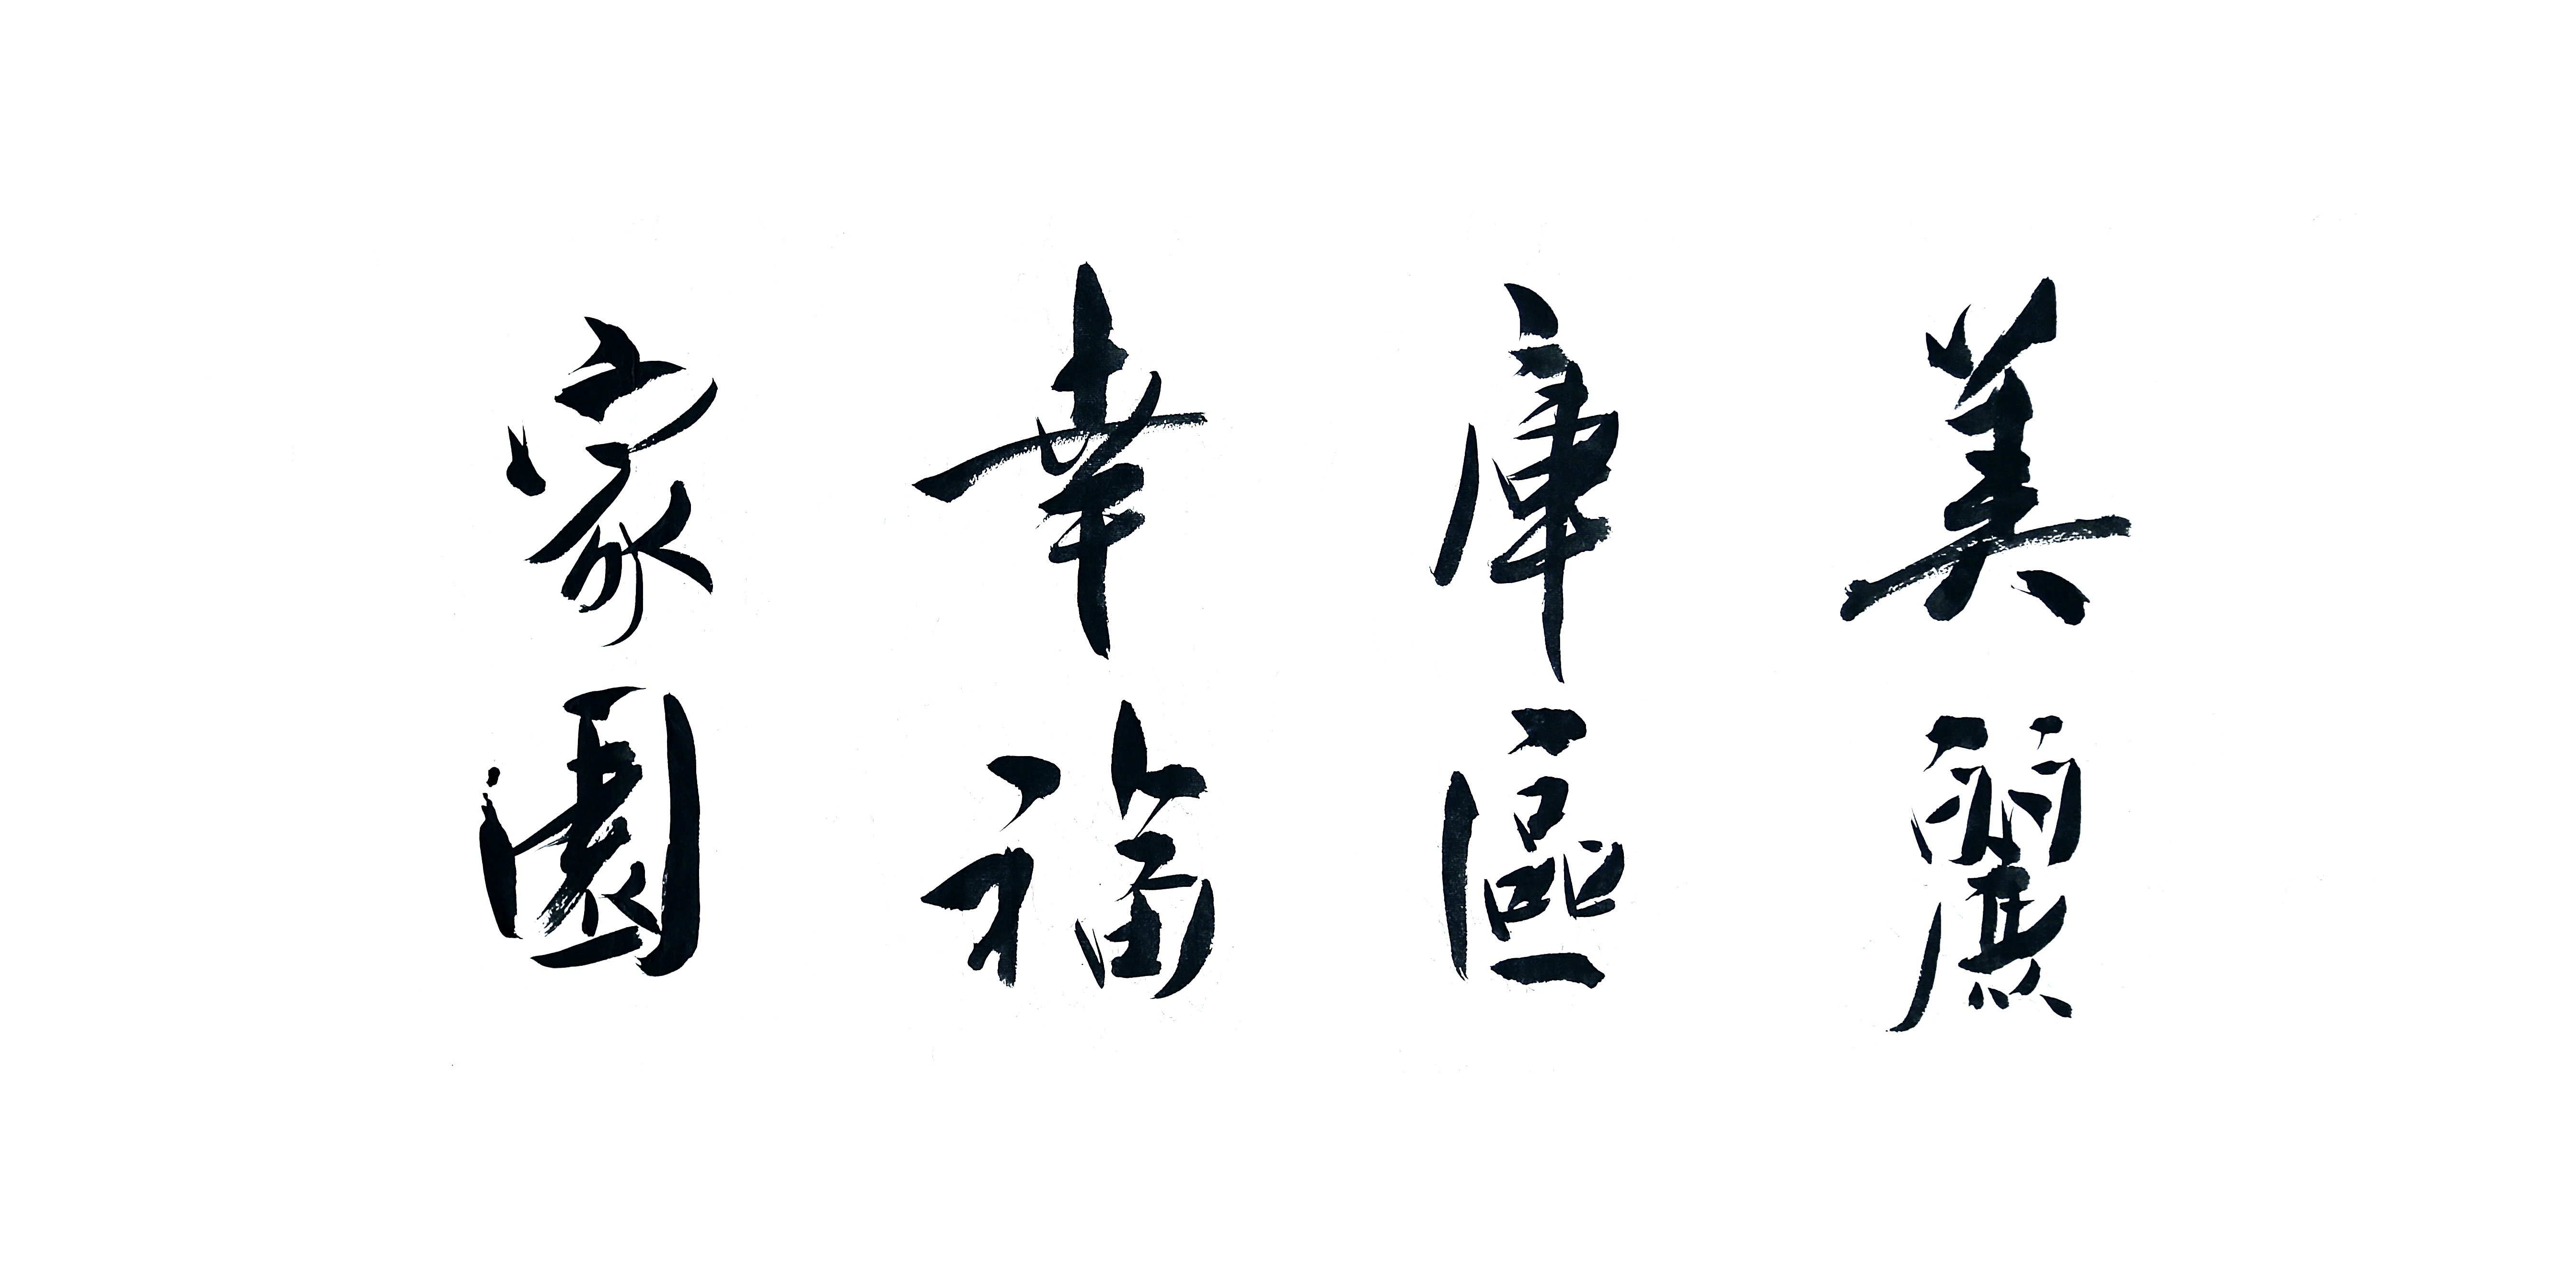 美麗
庫區
幸福
家園